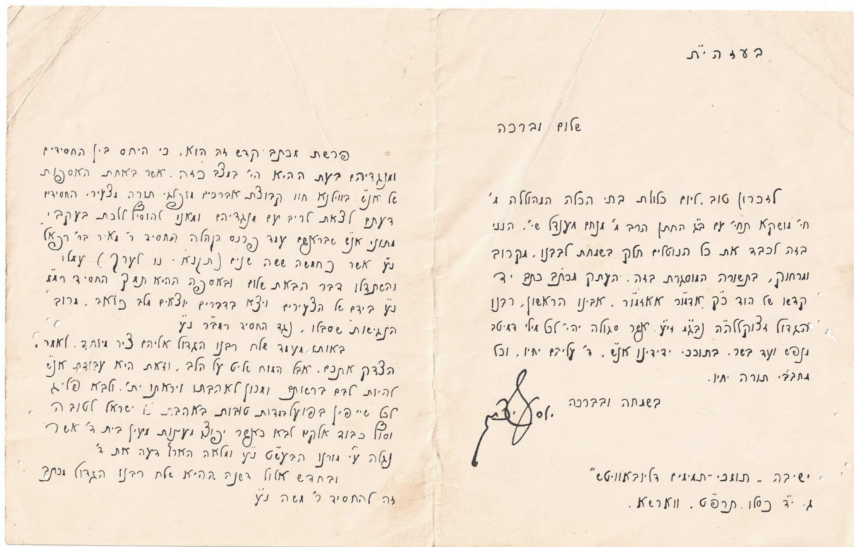 בעזה״ית
שלום וברכה
לזכרון טוב, ליום כלולת בתי הכלה המהוללה מ׳
חי׳ מושקא תחי׳ עם ב״ג החתן הרב מ׳ מנחם מענדל שי׳, הנני
בזה לכבד את כל הנוטלים חלק בשמחת לבבנו, מקרוב
ומרחוק, בתשורה המוסגרת בזה. העתק מכתב כתב יד
קדשו של הוד כ״ק אדמו״ר אאזמו״ר, אבינו הראשון, רבנו
הגדול זצוקללה״ה נבג״מ זי״ע, אשר סגולה יהי׳ לכל מילי דמיטב
מנפש ועד בשר, בתוככי ידידינו אנ״ש, ד׳ עליהם יחיו, וכל
מחבבי תורה יחיו.
בשמחה ובברכה
ישיבה - תומכי-תמימים דליובאוויטש״
ג׳ י״ד כסלו, תרפ״ט, ווארשא.
פרשת מכתב קדש זה הוא, כי היחס בין החסידים
ומנגדיהם בעת ההיא הי׳ במצב כזה, אשר באחת האספות
של אנ״ש בווילנא חוו קבוצת אברכים מופלגי תורה מצעירי החסידים
דעתם לצאת לריב עם מנגדיהם ומאנו להוסיל ללכת בעקבי
מתוני אנ״ש שבראשם עמד פרנס הקהלה החסיד ר׳ מאיר בר׳ רפאל
נ״ע אשר כחמשה ששה שנים (תקנ״א - נ״ז לערך) עמלו
והשתדלו דבר הבאת שלום ובאספה ההיא תמך החסיד רמ״מ
נ״ע בידם של הצעירים ויצא בדברים יוצאים מלב כואב, מרוב
הנגישות שסבלו, נגד החסיד רמב״ר נ״ע
באותו מעמד שלח רבנו הגדול אליהם ציר מיוחד, לאמר,
הצדק אתכם, אבל המוח שליט על הלב, וזאת היא עבודת אנ״ש
להיות לבם ברשותם ומכוון לאהבתו ויראתו ית׳, ולבא פליג
לכל שייפין בפועל ומדות טובות באהבת ישראל לטובה
וסוף כבוד אלקים לבא כאשר יפוצו מעינות מעין בית ד׳ אשר
נגלה ע״י מורנו הבעש״ט נ״ע ומלאה הארץ דעה את ד׳
ובחדש אלול דשנה ההיא שלח רבנו הגדול מכתב
זה להחסיד ר׳ משה נ״ע